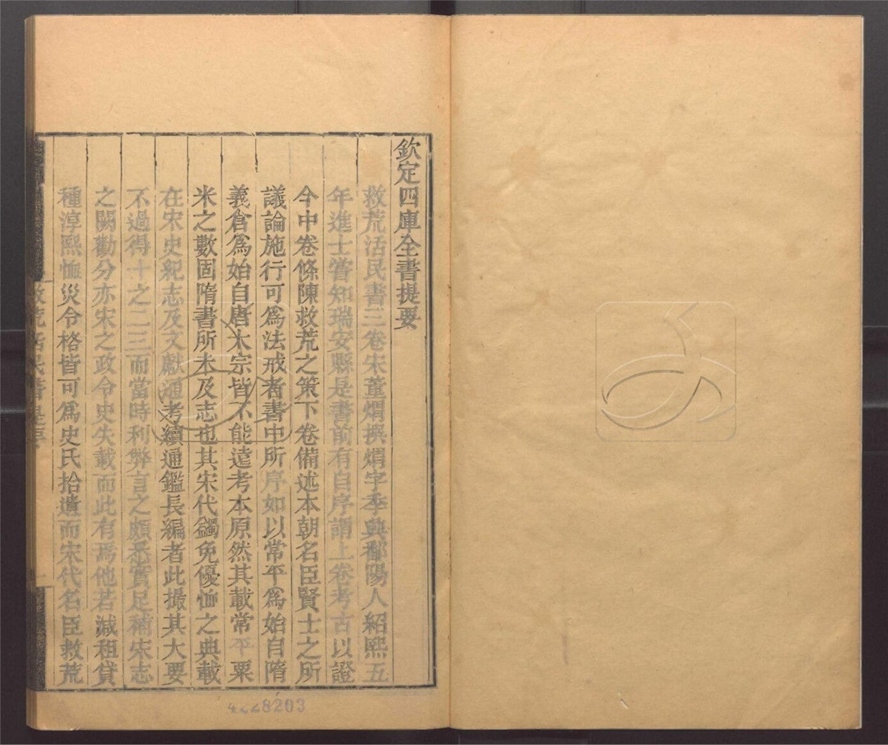 欽定四庫全書提要
救荒活民書三卷宋董煟撰煟字季興鄱陽人紹熙五
年進士嘗知瑞安縣是書前有自序謂上卷考古以證
今中卷條陳救荒之策下卷備述本朝名臣賢士之所
議論施行可為法戒者書中所序如以常平為始自隋
義倉為始自唐太宗皆不能遠考本原然其載常平粟
米之數固隋書所未及志也其宋代蠲免優恤之典載
在宋史紀志及文獻通考續通鑑長編者此撮其大要
不過得十之二三而當時利弊言之頗悉實足補宋志
之闕勸分亦宋之政令史失載而此有焉他若減租貸
種淳熙恤災令格皆可為史氏拾遺而宋代名臣救荒
救荒活民書提要
一
8203